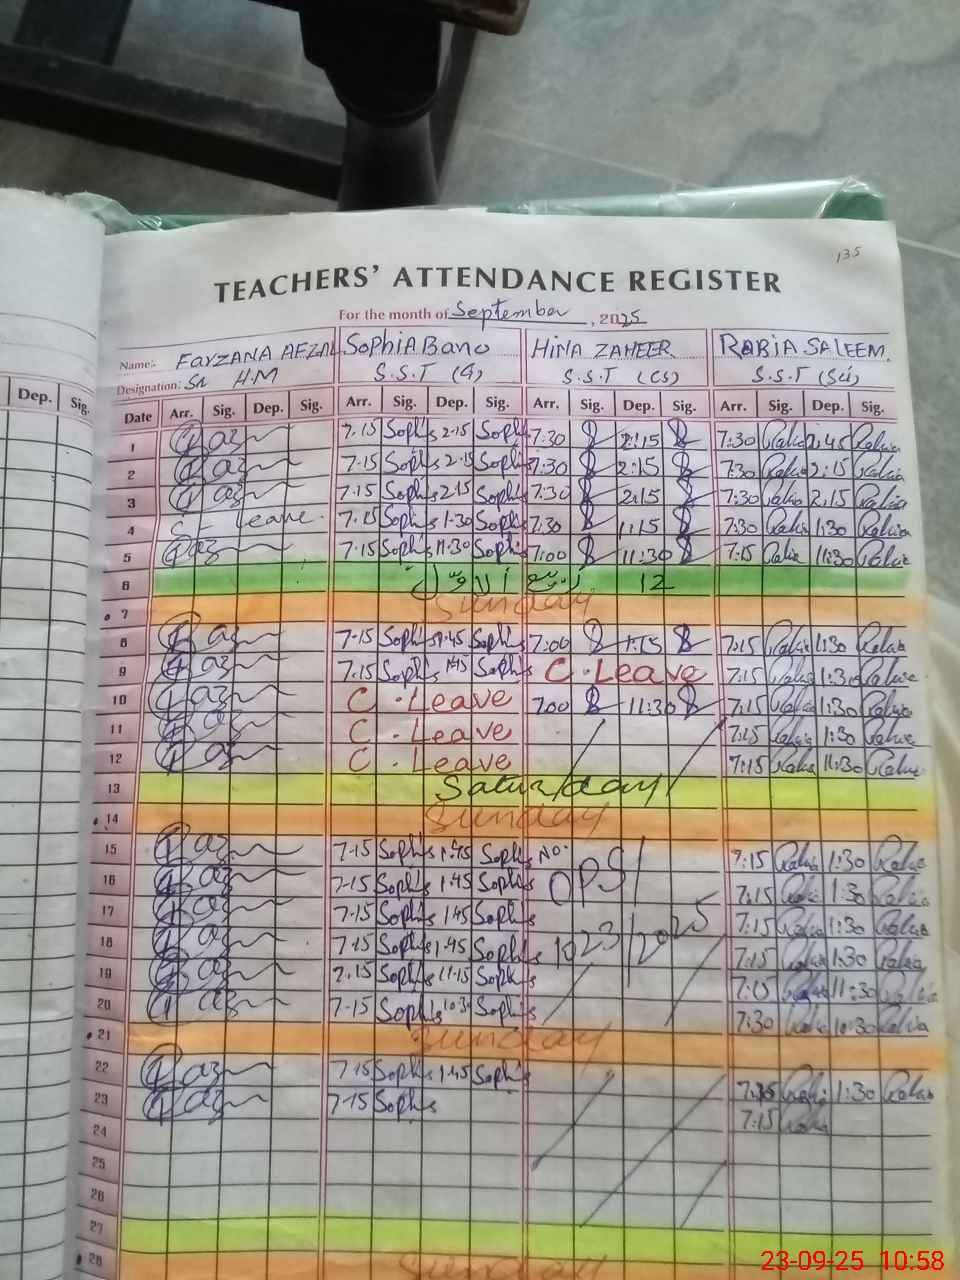 135
TEACHERS' ATTENDANCE REGISTER
For the month of September, 2025
Name: FARZANA AFZAL SOPHIA BANO HINA ZAHEER RABIA SALEEM.
Designation: Sr H.M S.S.T (G) S.S.T (CS) S.S.T (Sci)
Dep. Sig. Date Arr. Sig. Dep. Sig. Arr. Sig. Dep. Sig. Arr. Sig. Dep. Sig. Arr. Sig. Dep. Sig.
1 7.15 Soph's 2-15 Soph's 7:30 2:15 7:30 Rabia 2:45 Rabia
2 7-15 Soph's 2-15 Soph's 7:30 2:15 7:30 Rabia 2:15 Rabia
3 7.15 Soph's 2.15 Soph's 7:30 2:15 7:30 Rabia 2:15 Rabia
4 leave. 7.15 Soph's 1.30 Soph's 7:30 1:15 7:30 Rabia 1:30 Rabia
5 7.15 Soph's 11.30 Soph's 7:00 11:30 7:15 Rabia 11:30 Rabia
6 12 ربیع الاوّل
7 Sunday
8 7-15 Soph's 1.45 Soph's 7:00 1:15 7:15 Rabia 1:30 Rabia
9 7.15 Soph's 1.45 Soph's C. Leave 7:15 Rabia 1:30 Rabia
10 C. Leave 7:00 11:30 7:15 Rabia 1:30 Rabia
11 C. Leave 7:15 Rabia 1:30 Rabia
12 C. Leave 7:15 Rabia 11:30 Rabia
13 Saturday
14 Sunday
15 7-15 Soph's 1.45 Soph's No. 7:15 Rabia 1:30 Rabia
16 7-15 Soph's 1.45 Soph's OPS/ 7:15 Rabia 1:30 Rabia
17 7-15 Soph's 1.45 Soph's 7:15 Rabia 1:30 Rabia
18 7-15 Soph's 1.45 Soph's 1023/2025 7:15 Rabia 1:30 Rabia
19 7.15 Soph's 11.15 Soph's 7:15 Rabia 11:30 Rabia
20 7-15 Soph's 10.30 Soph's 7:30 Rabia 10:30 Rabia
21 Sunday
22 7-15 Soph's 1.45 Soph's 7:15 Rabia 1:30 Rabia
23 7-15 Soph's 7:15 Rabia
24
25
26
27
28 Sunday
23-09-25 10:58